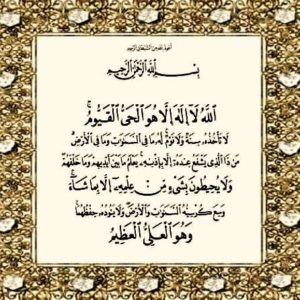 أعوذ بالله من الشيطان الرجيم
بِسْمِ اللَّهِ الرَّحْمَٰنِ الرَّحِيمِ
اللَّهُ لَا إِلَٰهَ إِلَّا هُوَ الْحَيُّ الْقَيُّومُ
لَا تَأْخُذُهُ سِنَةٌ وَلَا نَوْمٌ لَهُ مَا فِي السَّمَاوَاتِ وَمَا فِي الْأَرْضِ
مَنْ ذَا الَّذِي يَشْفَعُ عِنْدَهُ إِلَّا بِإِذْنِهِ يَعْلَمُ مَا بَيْنَ أَيْدِيهِمْ وَمَا خَلْفَهُمْ
وَلَا يُحِيطُونَ بِشَيْءٍ مِنْ عِلْمِهِ إِلَّا بِمَا شَاءَ
وَسِعَ كُرْسِيُّهُ السَّمَاوَاتِ وَالْأَرْضَ وَلَا يَئُودُهُ حِفْظُهُمَا
وَهُوَ الْعَلِيُّ الْعَظِيمُ